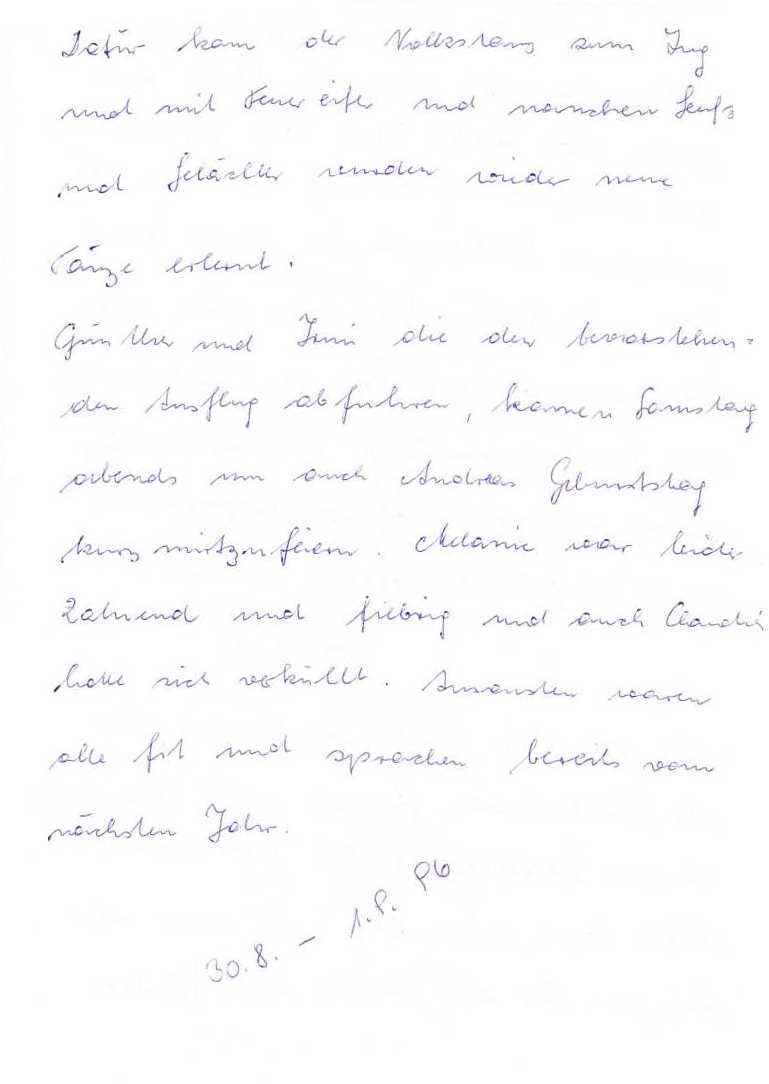 Dafür kam der Volkstanz zum Zug
und mit Feuereifer und manchen Seufz
und Gelächter wurden wieder neue
Tänze erlernt.
Günther und Irmi die den bevorstehen=
den Ausflug abfuhren, kamen Samstag
abends um auch Andreas Geburtstag
kurz mitzufeiern. Melanie war leider
Zahnend und fiebrig und auch Claudia
hatte sich verkühlt. Ansonsten waren
alle fit und sprachen bereits vom
nächsten Jahr.
30.8. – 1.9. 96